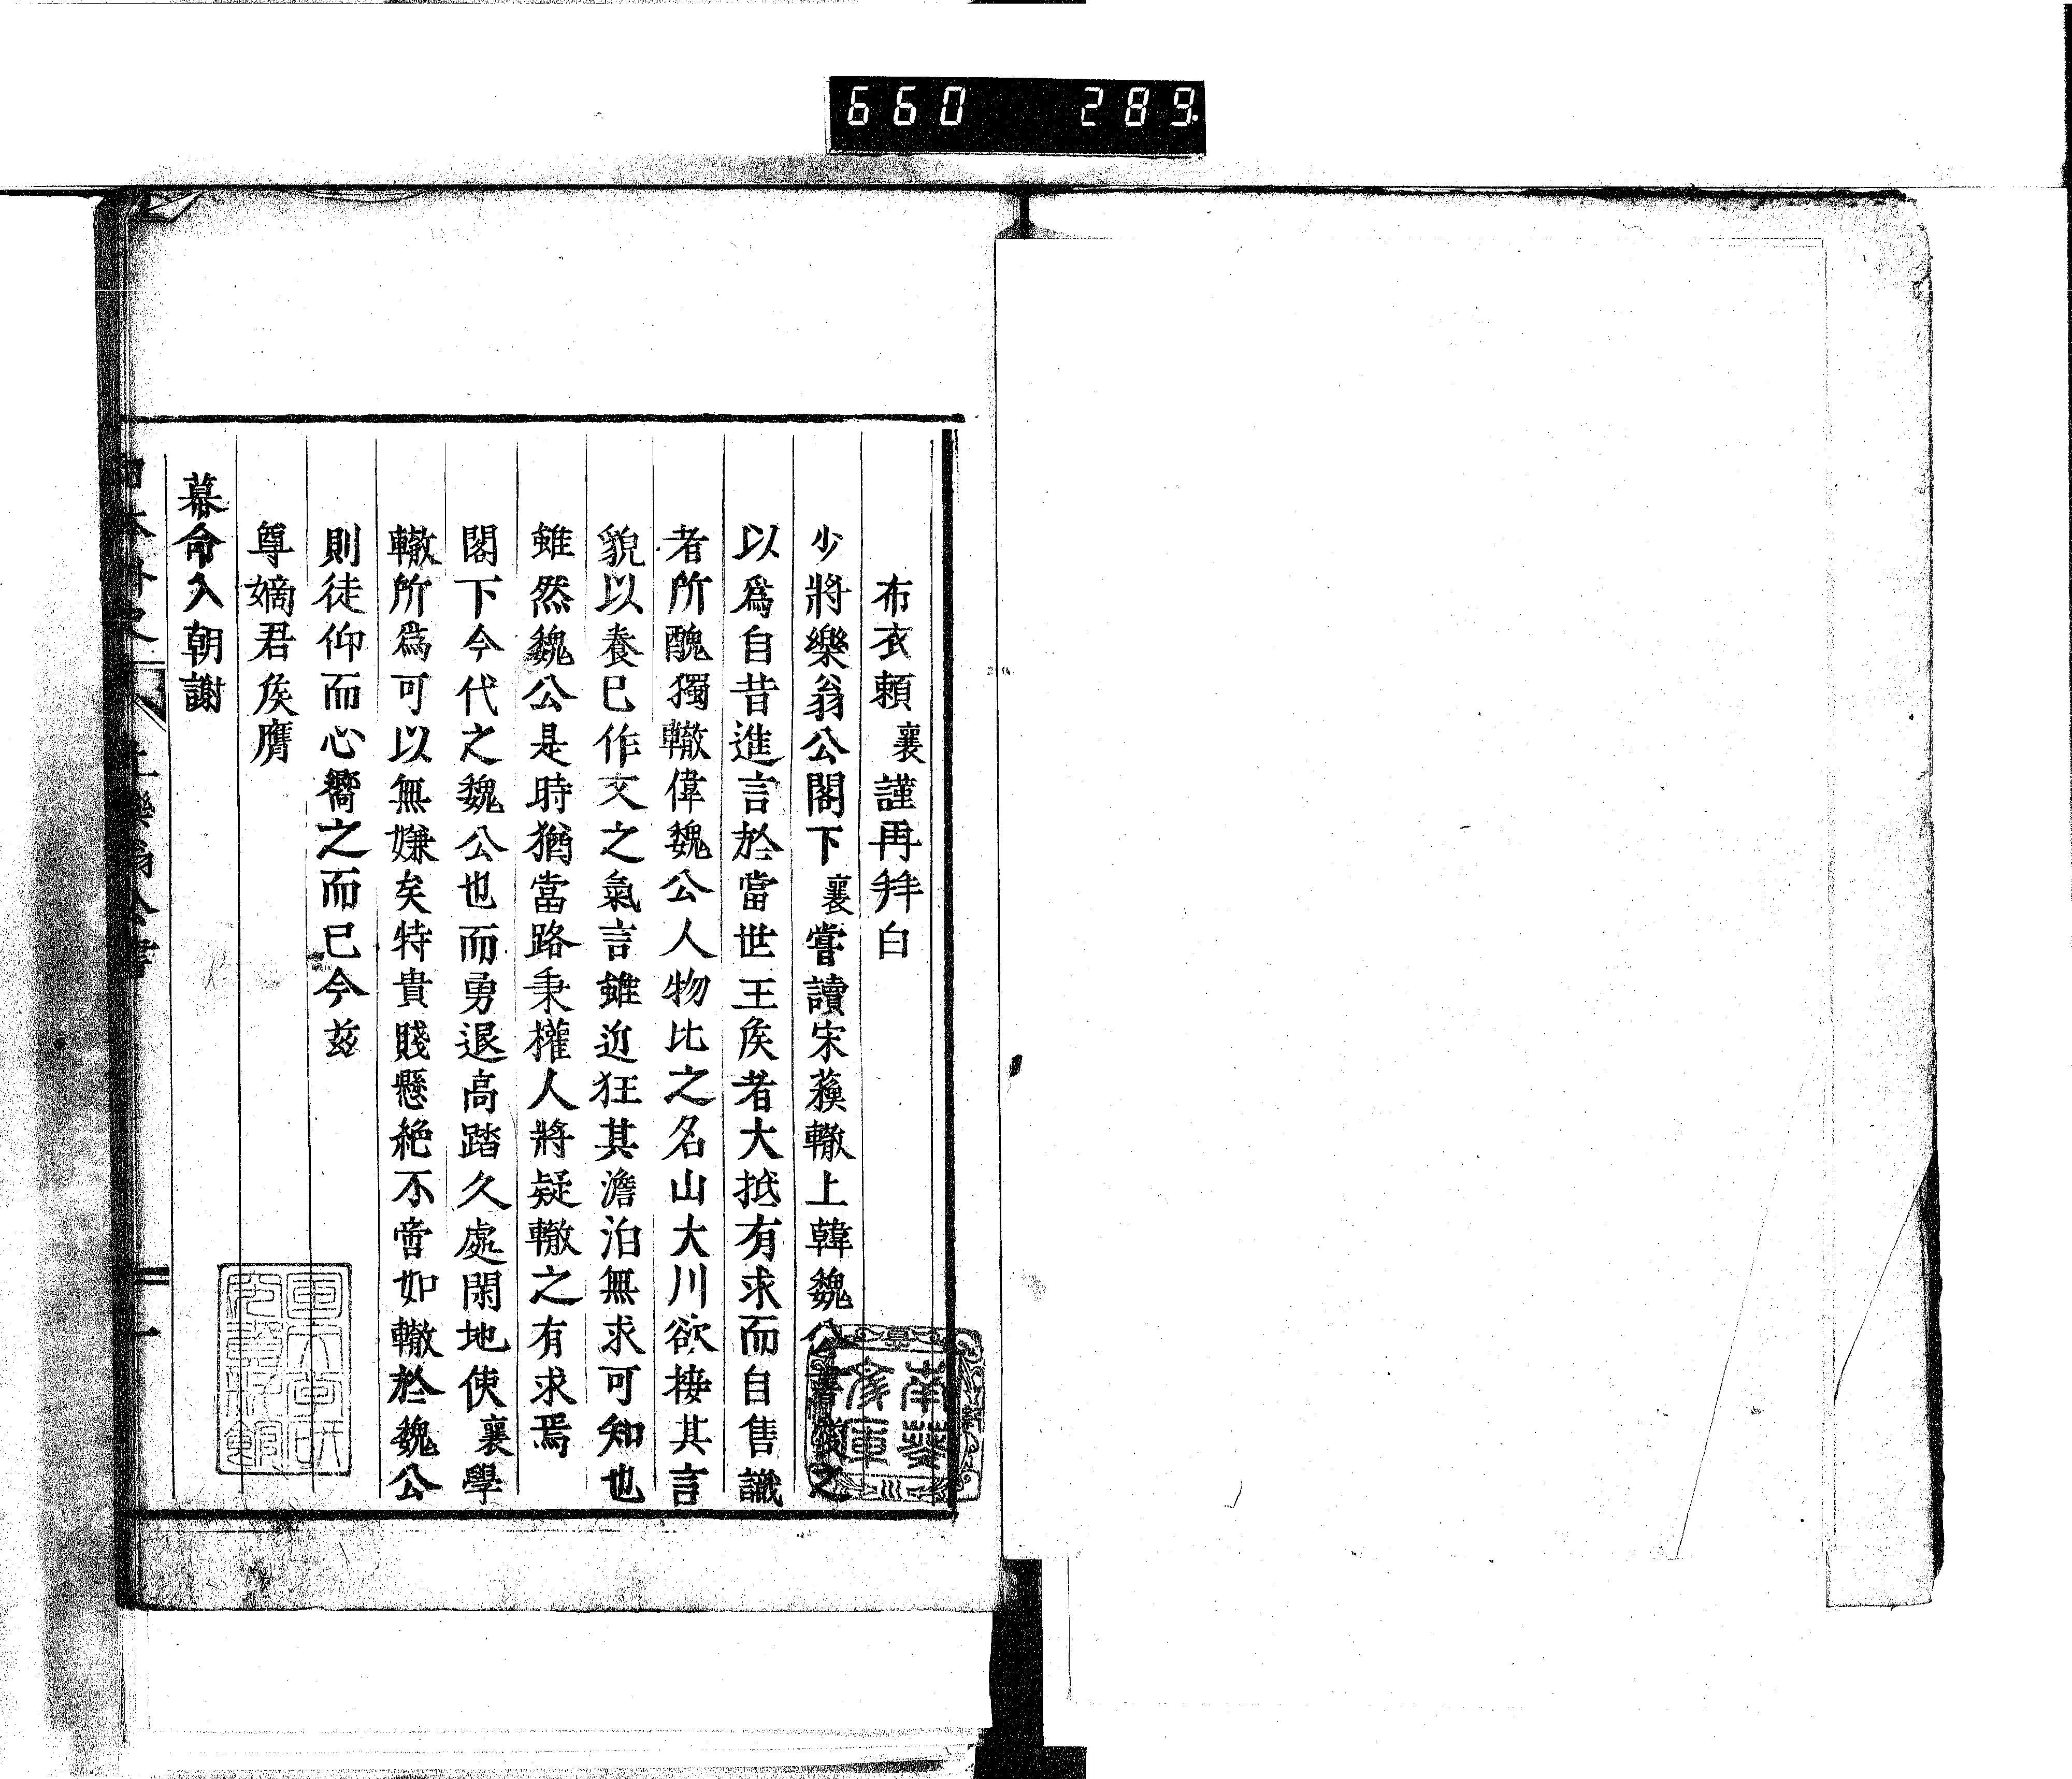 660 289
布衣頼襄謹再拜白
少將樂翁公閣下襄嘗讀宋蘓轍上韓魏公書
以爲自昔進言於當世王矦者大抵有求而自售識
者所醜獨轍偉魏公人物比之名山大川欲接其言
貌以養已作文之氣言雖近狂其澹泊無求可知也
雖然魏公是時猶當路秉權人將疑轍之有求焉
閣下今代之魏公也而勇退高踏久處閑地使襄學
轍所爲可以無嫌矣特貴賤懸絶不啻如轍於魏公
則徒仰而心嚮之而已今茲
尊嫡君矦膺
幕命入朝謝
上樂翁公書
一